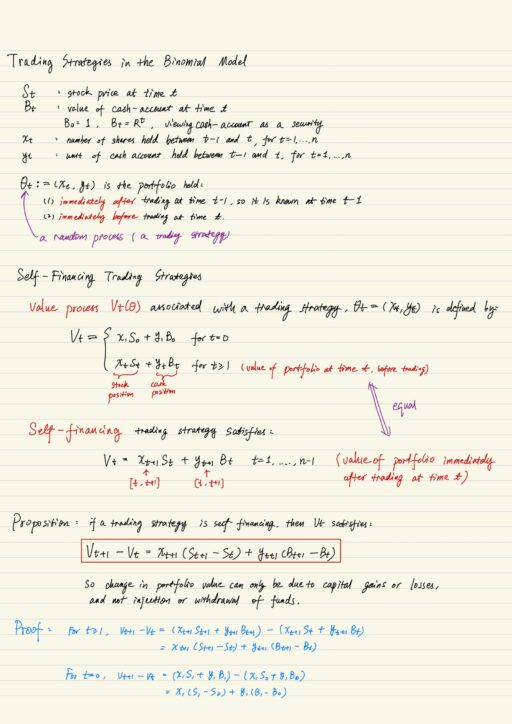 Trading Strategies in the Binomial Model
St : stock price at time t
Bt : value of cash-account at time t
B0 = 1, Bt = R^t, viewing cash-account as a security
xt : number of shares held between t-1 and t, for t=1,...,n
yt : unit of cash account held between t-1 and t, for t=1,...,n
θt := (xt, yt) is the portfolio held:
(1) immediately after trading at time t-1, so it is known at time t-1
(2) immediately before trading at time t.
a random process (a trading strategy)
Self-Financing Trading Strategies
Value process Vt(θ) associated with a trading strategy, θt = (xt, yt) is defined by:
Vt = { x1S0 + y1B0 for t=0
xtSt + ytBt for t≥1 (value of portfolio at time t, before trading)
stock position cash position
equal
Self-financing trading strategy satisfies:
Vt = xt+1 St + yt+1 Bt t=1,....,n-1 (value of portfolio immediately
[t, t+1] [t, t+1] after trading at time t)
Proposition: if a trading strategy is self financing, then Vt satisfies:
Vt+1 - Vt = xt+1 (St+1 - St) + yt+1 (Bt+1 - Bt)
So change in portfolio value can only be due to capital gains or losses,
and not injection or withdrawal of funds.
Proof: For t≥1, Vt+1 - Vt = (xt+1 St+1 + yt+1 Bt+1) - (xt+1 St + yt+1 Bt)
= xt+1 (St+1 - St) + yt+1 (Bt+1 - Bt)
For t=0, Vt+1 - Vt = (x1S1 + y1B1) - (x1S0 + y1B0)
= x1(S1 - S0) + y1(B1 - B0)